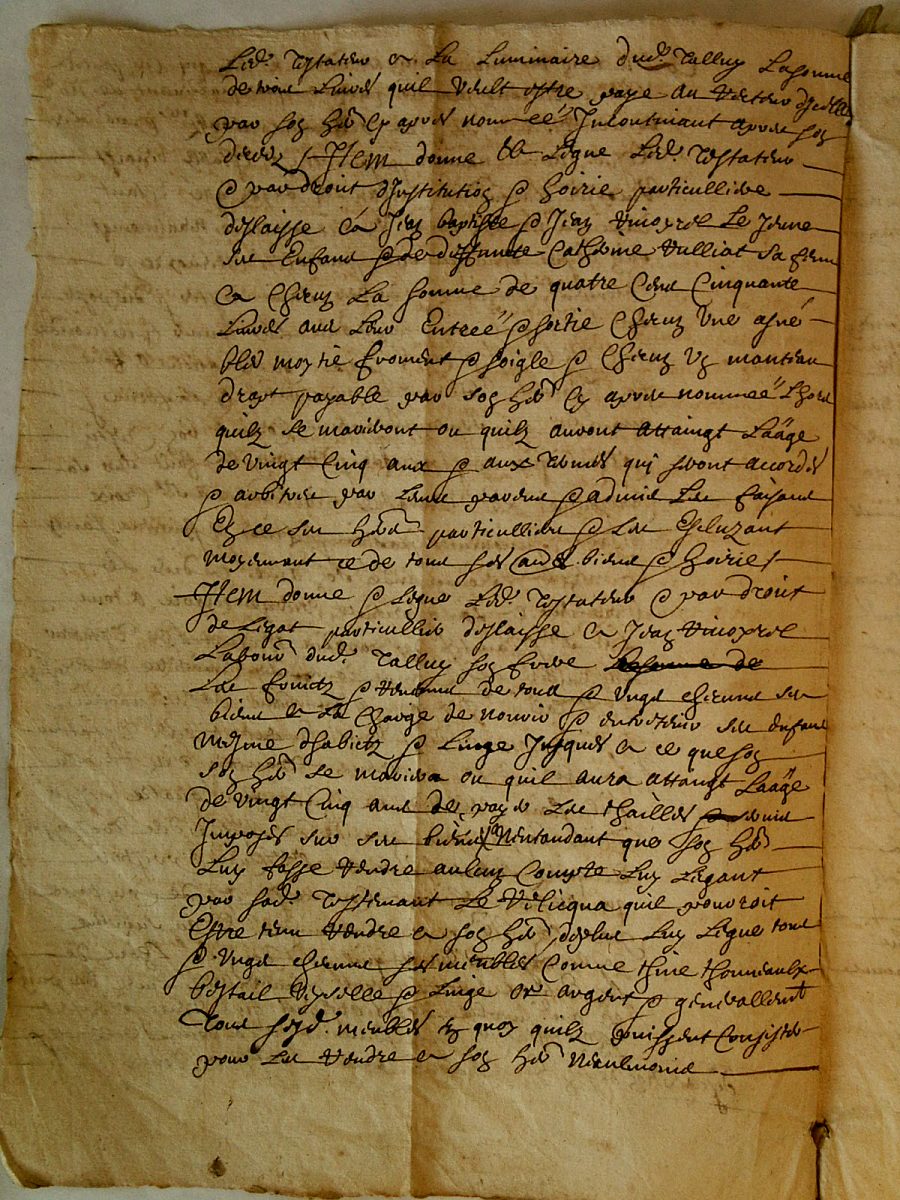 Led. Testateur a La Luminaire dud. Talluy La somme
de trois Livres quil veult estre paye au Vestier dicelle
par son her. cy apres nommée Incontinant apres son
deces / Item donne et Legue Led. Testateur
& par droit dInstitution & hoirie particulliere
deslaisse a Jean baptiste & Jean Vincent Le Jeune
ses Enfans & de deffuncte Catherine Vulliat sa fem
a chascun La somme de quatre Cens Cinquante
Livres avec Leur Entrée & sortie chascun Une asné
bled moytie froment & soigle & chascun Un manteau
drapt payable par son her. cy apres nommée Lhors
quilz se mariront ou quilz auront attaingt Laäge
de vingt Cinq ans & aux termes qui seront accordes
& arbitres par Leurs parens & admis Les faisant
En ce ses hers particulliers & Les Excluzant
moyennant ce de tous ses biens & hoirie /
Item donne & Legue Led. Testateur & par droit
de Legat particullier deslaisse a Jean
Labour. dud. Talluy son frere
Les fruictz & revenus de tous & Ungs chascuns ses
biens a La Charge de nourrir & entretenir ses enfans
mesme dhabictz & Linge Jusques a ce que son
son her. se mariera ou quil aura attaingt Laäge
de Vingt Cinq ans de payer Les thailles
Imposes sur ses biens Nentandant que son her.
Luy fasse rendre aulcun Compte Luy Legant
par sond. Testemant Le Relicqua quil pourroit
Estre tenu rendre a son her. deplus Luy Legue tous
& Ungs chascuns ses meubles Comme thine thonneaulx
bestail Vesselle & Linge or argent & generallemt
Tous sesd. meubles En quoy quilz puissent Consister
pour Les rendre a son her. Neanlmoins